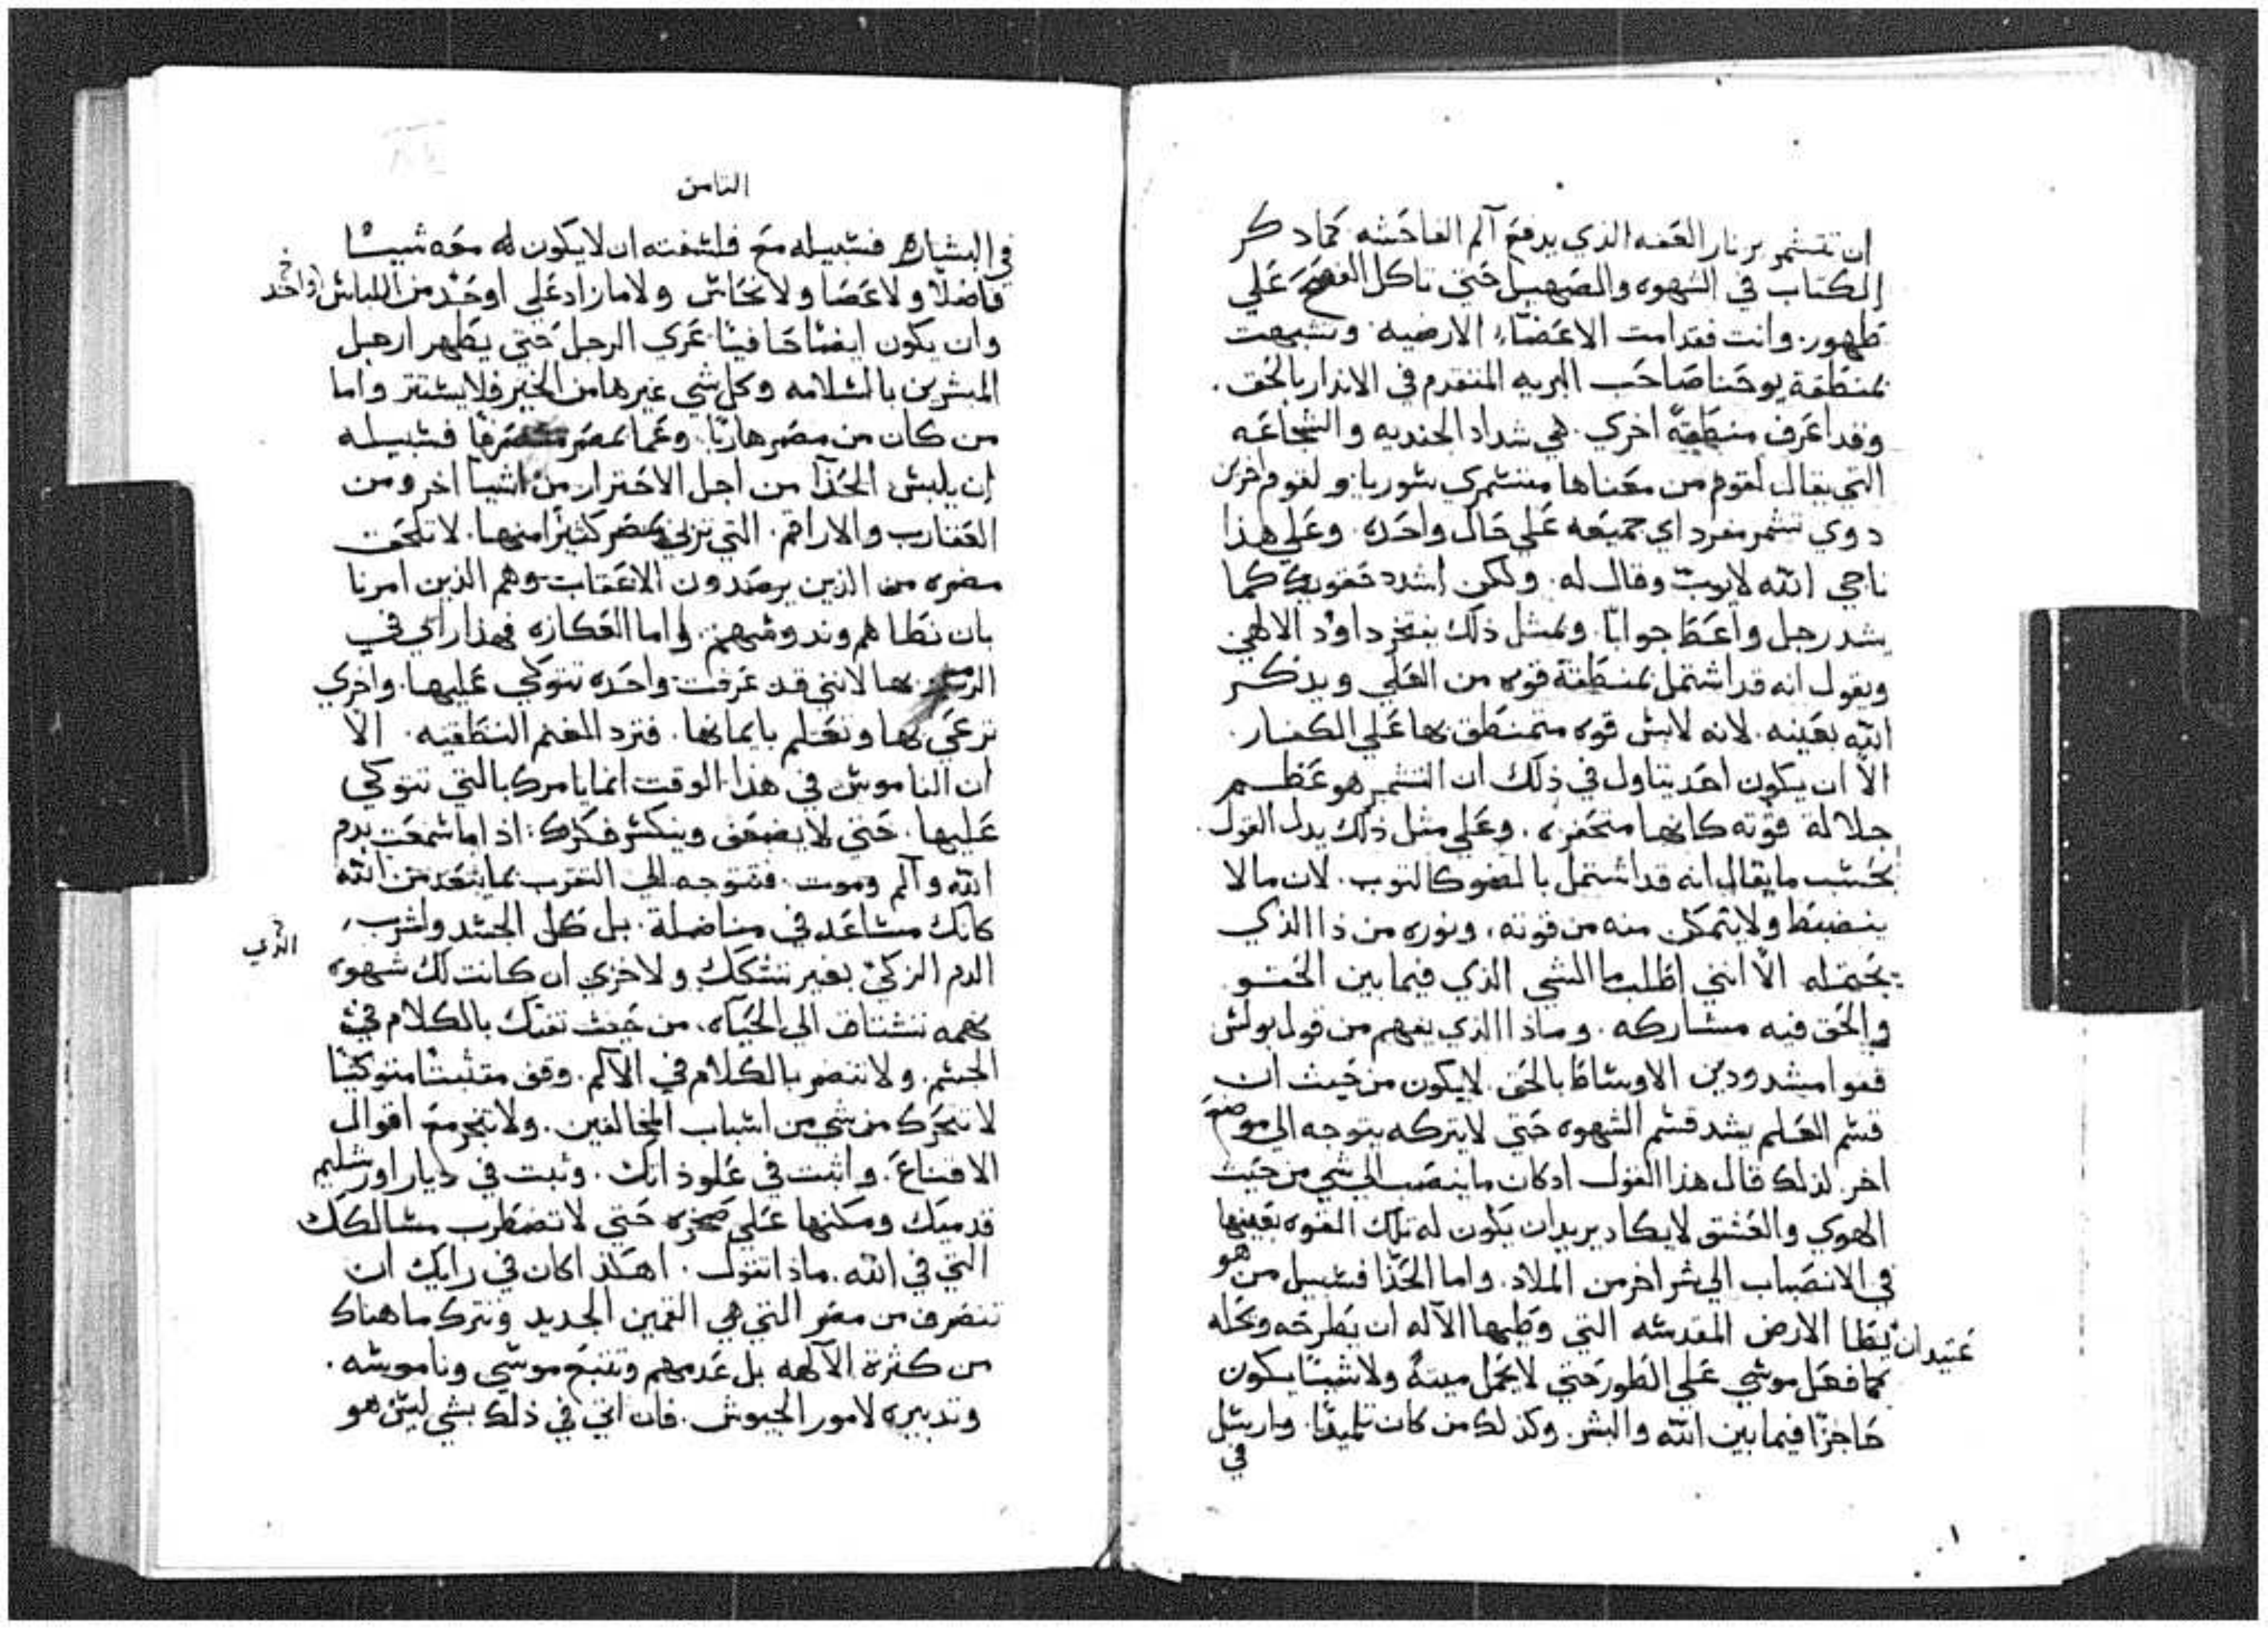 ان تتشمر بزنار العفه الذي يدفع آلم الفاحشه كما ذكر
الكتاب في الشهوه والصهيل حتي تاكل الفصح علي
طهور. وانت فقد امت الاعضاء الارضيه. وتشبهت
بمنطقة يوحنا صاحب البريه المتقدم في الانذار بالحق.
وقد اعرف منطقة اخري. هي شداد الجنديه والشجاعه
التي يقال لقوم من معناها متشمري سوريا. ولقوم اخرين
ذوي تشمر مفرد اي جميعه علي حال واحده. وعلي هذا
ناجي الله لايوب وقال له. ولكن اشدد حقويك كما
يشد رجل واعط جوابا. وبمثل ذلك يفتخر داوود الالهي
ويقول انه قد اشتمل بمنطقة قوه من العلي ويذكر
الله بعينه. لانه لابس قوه متمنطق بها علي الكفار.
الا ان يكون احد يتاول في ذلك ان التشمر هو عظم
جلالة قوته كانها متحفزه. وعلي مثل ذلك يدل القول
بحسب ما يقال انه قد اشتمل بالضو كالثوب. لان ما لا
ينضبط ولا يتمكن منه من قوته، ونوره من ذا الذي
يحتمله الا انني اطلب ما الشي الذي فيما بين الحقو
والحق فيه مشاركه. وماذا الذي يفهم من قول بولس
قفوا مشدودين الاوساط بالحق. لايكون من حيث ان
قسم العلم يشد قسم الشهوه حتي لايتركه يتوجه الي موضع
اخر. لذلك قال هذا القول اذ كان ما ينصب الي شي من حيث
الهوي والعشق لايكاد يريد ان يكون له تلك القوه بعينها
في الانصباب الي شر اخر من الملاذ. واما الحذا فسبيل من هو
عتيد ان يطا الارض المقدسه التي وطيها الآله ان يطرحه ويحله
كما فعل موسي علي الطور حتي لا يحمل ميتة ولا شيئا يكون
حاجزا فيما بين الله والبشر. وكذلك من كان تلميذا. وارسل
في
الثامن
في البشاره فسبيله مع فلسفته ان لايكون له معه شييا
فاضلا ولا عصا ولا نحاس ولا ما زاد علي اوحد من اللباس
واحد
وان يكون ايضا حافيا عري الرجل حتي يظهر ارجل
المبشرين بالسلامه وكل شي غيرها من الخير فلايستتر واما
من كان من مصر هاربا. وعما بمصر منصرفا فسبيله
ان يلبس الحذا من اجل الاحتراز من اشيا اخر ومن
العقارب والاراقم. التي تربي بمصر كثيرا منها. لا تلحقه
مضره من الذين يرصدون الاعقاب وهم الذين امرنا
بان نطاهم وندوسهم. واما العكازه فهذا رايي في
بها لانني قد عرفت واحده نتوكي عليها. واخري
ترعي بها وتعلم بايمانها. فترد الغنم النطقيه. الا
ان الناموس في هذا الوقت انما يامرك بالتي تتوكي
عليها. حتي لا يضعف وينكسر فكرك: اذا ما سمعت بدم
الله وآلم وموت. فتتوجه الي التقرب بما يبعد من الله
كانك مساعد في مناضلة. بل كل الجسد واشرب
الذي
الدم الزكي بغير تشكك ولا خزي ان كانت لك شهوه
نهمه تشتاق الي الحياه، من حيث تفتك بالكلام في
الجسم. ولا تنضر بالكلام في الآلم. وقف متثبتا متوكيا
لا تتحرك من شي من اسباب المخالفين. ولا تنجر مع اقوال
الاقناع. واثبت في علو ذاتك. وثبت في ديار اورشليم
قدميك ومكنها علي صخره حتي لا تضطرب مسالكك
التي في الله. ماذا تقول. اهكذا كان في رايك ان
تنصرف من مصر التي هي القمين الجديد وتترك ما هناك
من كثرة الآلهه بل عدمهم وتتبع موسي وناموسه.
وتدبيره لامور الجيوش. فان اتي في ذلك بشي ليس هو